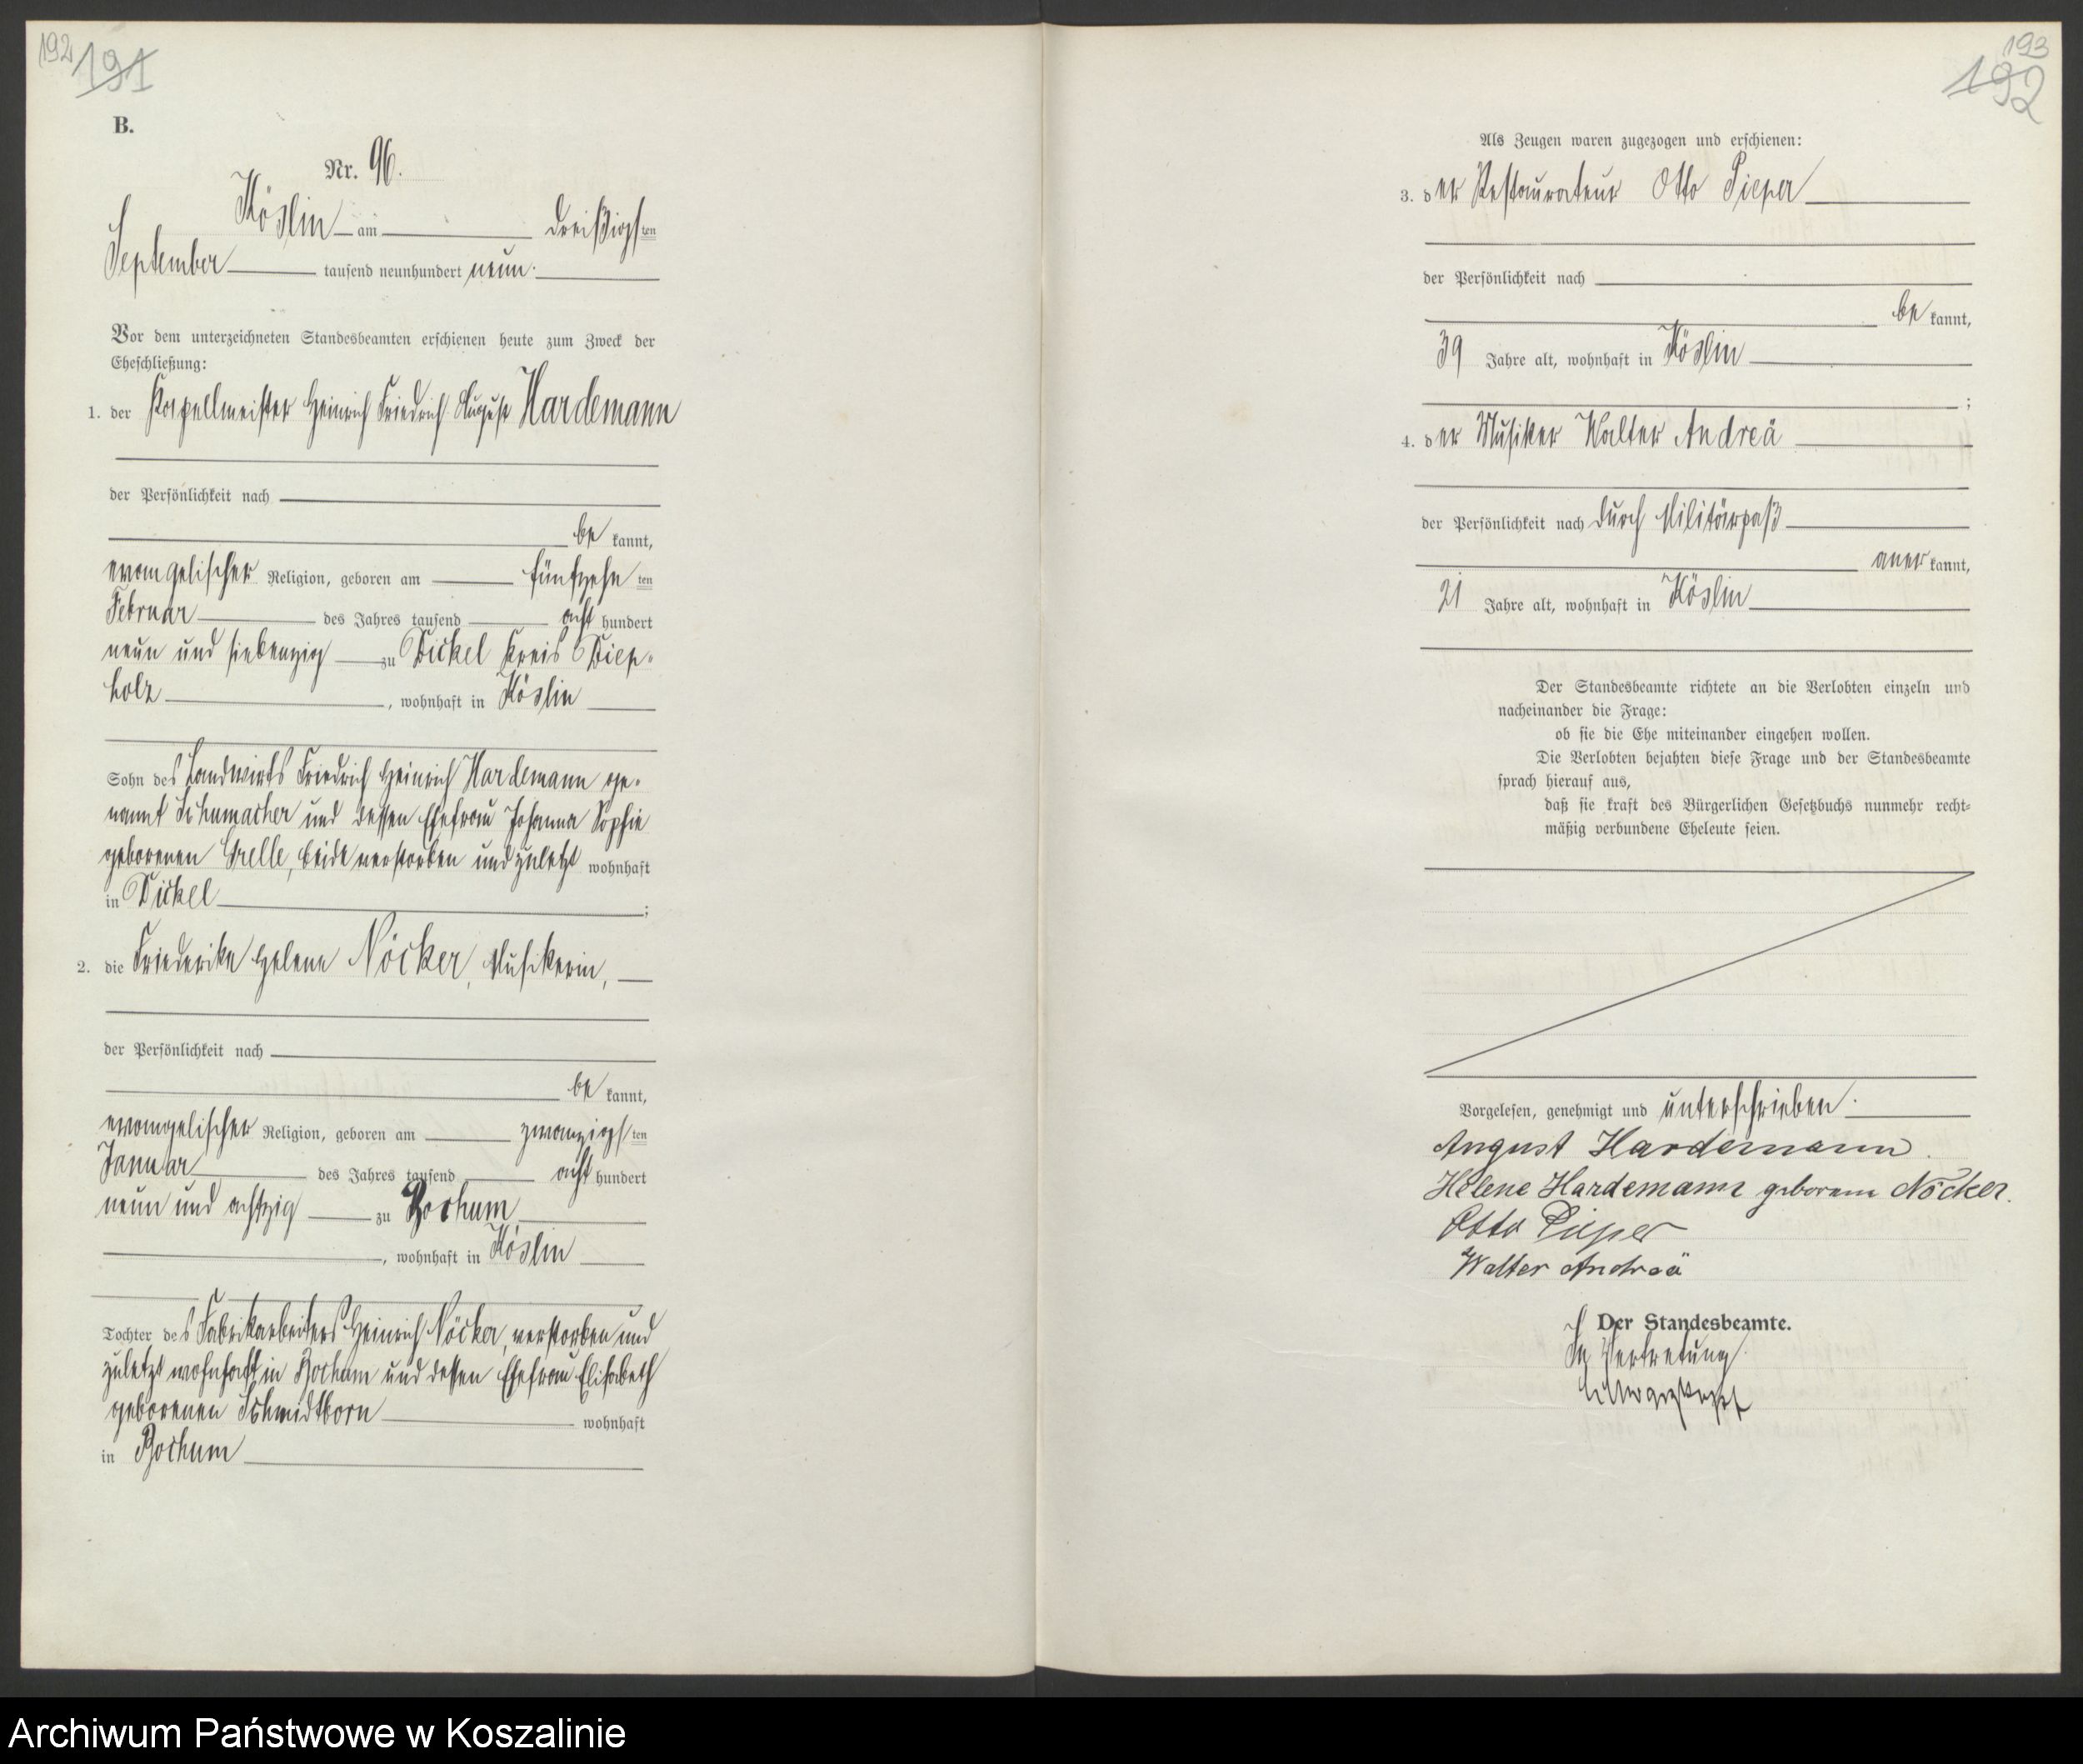 192
191
B.
Nr. 96.
Köslin am dreißigsten
September tausend neunhundert neun.
Vor dem unterzeichneten Standesbeamten erschienen heute zum Zweck der
Eheschließung:
1. der Kapellmeister Heinrich Friedrich August Hardemann
der Persönlichkeit nach
bekannt,
evangelischer Religion, geboren am fünfzehnten
Februar des Jahres tausend achthundert
neun und siebenzig zu Dickel Kreis Diep-
holz, wohnhaft in Köslin
Sohn des Landwirts Friedrich Heinrich Hardemann ge-
nannt Schumacher und dessen Ehefrau Johanna Sophie
geborenen Grelle, beide verstorben und zuletzt wohnhaft
in Dickel;
2. die Friederike Helene Nöcker, Musikerin,
der Persönlichkeit nach
bekannt,
evangelischer Religion, geboren am zwanzigsten
Januar des Jahres tausend achthundert
neun und achtzig zu Bochum
, wohnhaft in Köslin
Tochter des Fabrikarbeiters Heinrich Nöcker, verstorben und
zuletzt wohnhaft in Bochum und dessen Ehefrau Elisabeth
geborenen Schmidtborn wohnhaft
in Bochum
193
192
Als Zeugen waren zugezogen und erschienen:
3. der Restaurateur Otto Pieper
der Persönlichkeit nach
bekannt,
39 Jahre alt, wohnhaft in Köslin
;
4. der Musiker Walter Andreä
der Persönlichkeit nach durch Militärpaß
anerkannt,
21 Jahre alt, wohnhaft in Köslin
Der Standesbeamte richtete an die Verlobten einzeln und
nacheinander die Frage:
ob sie die Ehe miteinander eingehen wollen.
Die Verlobten bejahten diese Frage und der Standesbeamte
sprach hierauf aus,
daß sie kraft des Bürgerlichen Gesetzbuchs nunmehr recht-
mäßig verbundene Eheleute seien.
Vorgelesen, genehmigt und unterschrieben.
August Hardemann.
Helene Hardemann geborene Nöcker.
Otto Pieper
Walter Andreä
Der Standesbeamte.
In Vertretung
Archiwum Państwowe w Koszalinie